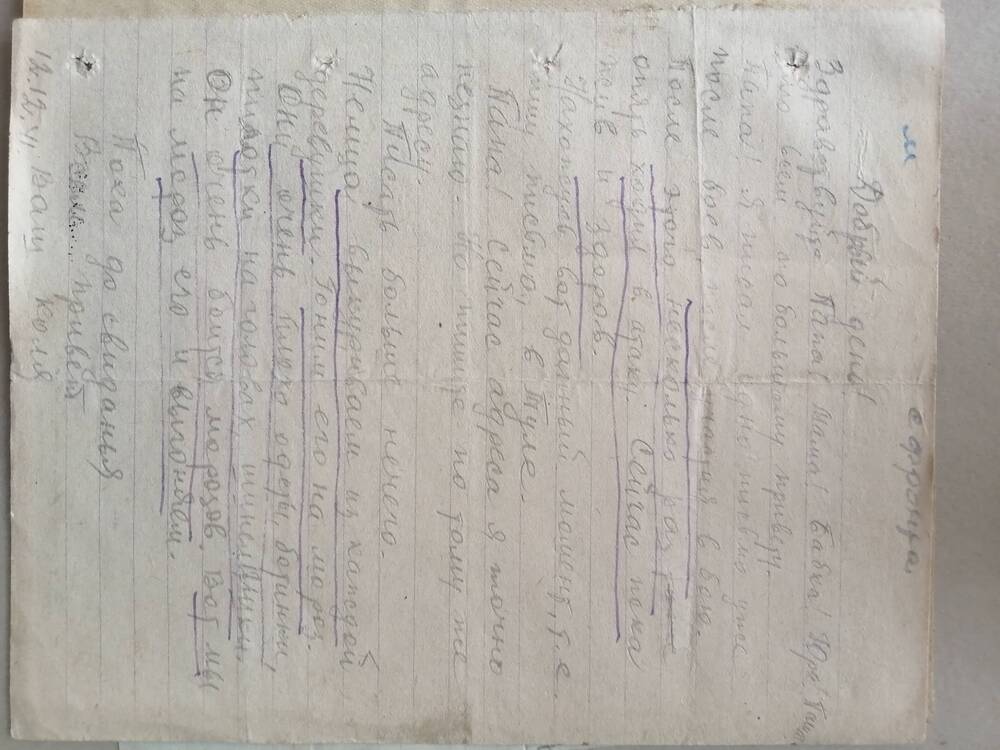 м
с фронта.
Добрый день!
Здравствуйте Папа! Мама! Бабка! Юра!
всем по большому привету.
Папа! Я писал одно письмо уже
после боев, после участия в бою.
После этого несколько раз
опять ходил в атаку. Сейчас пока
жив и здоров.
Нахожусь вот данный момент, т.е.
пишу письмо, в Туле.
Папа! Сейчас адреса я точно
незнаю. Но пишите по тому же
адресу.
Писать больше нечего.
Немца выкуриваем из каждой
деревушки. Гоним его на мороз.
Они очень плохо одеты, ботинки,
пилотки на головах, шинелишки.
Он очень боится морозов. Вот мы
на мороз его и выгоняем.
Пока до свиданья
привет
12.12.41 Ваш Коля